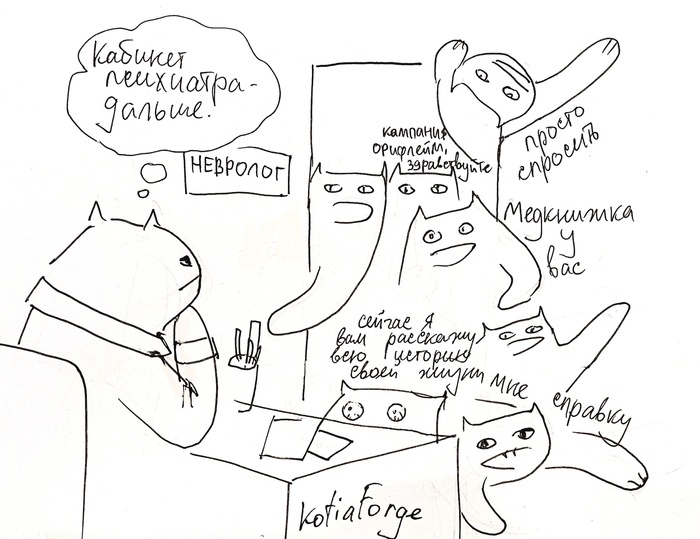 Кабинет
психиатра-
дальше.
НЕВРОЛОГ
кампания
орифлейм,
здравствуйте
просто
спросить
Медкнижка
у
вас
сейчас я
вам расскажу
всю историю
своей жизни
мне справку
KotiaForge